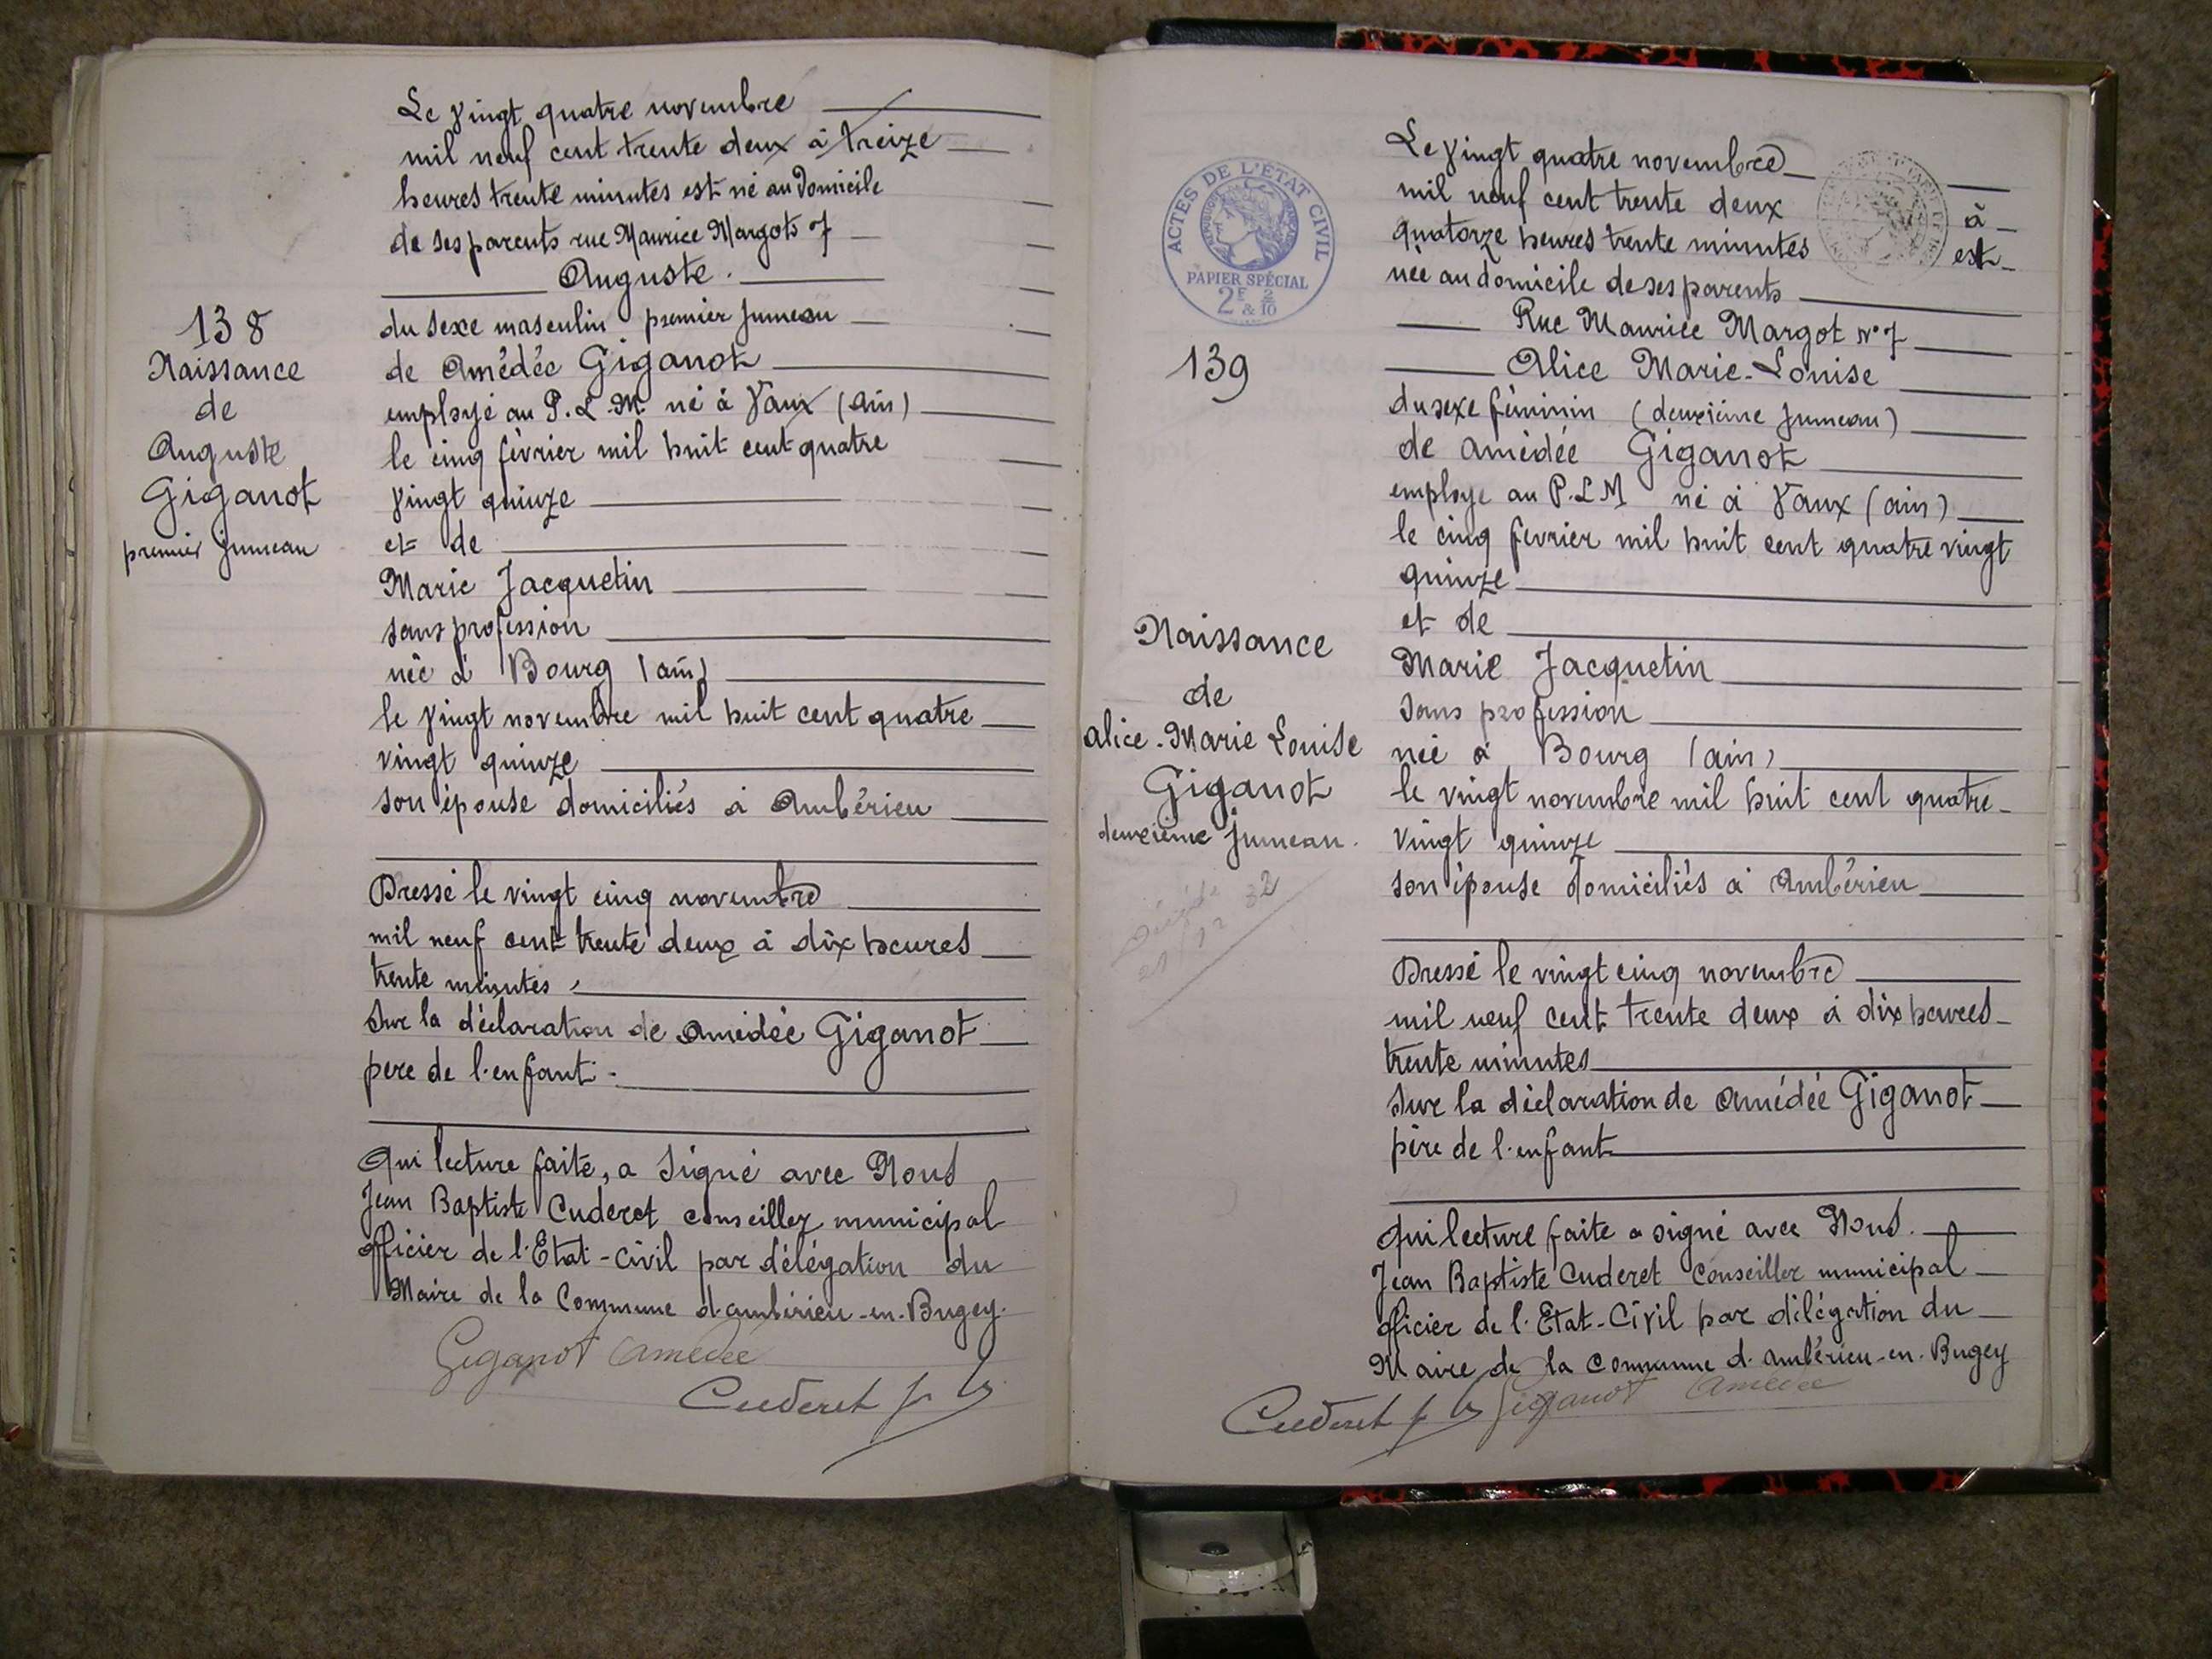 Le vingt quatre novembre
mil neuf cent trente deux à treize
heures trente minutes est né au domicile
de ses parents rue Maurice Margots 7
Auguste.
138
Naissance
de
Auguste
Giganot
premier jumeau
du sexe masculin premier jumeau
de Amédée Giganot
employé au P.L.M. né à Vaux (Ain)
le cinq février mil huit cent quatre
vingt quinze
et de
Marie Jacquetin
sans profession
née à Bourg (ain)
le vingt novembre mil huit cent quatre
vingt quinze
son épouse domiciliés à Ambérieu
Dressé le vingt cinq novembre
mil neuf cent trente deux à dix heures
trente minutes,
sur la déclaration de Amédée Giganot
père de l'enfant.
Qui lecture faite, a signé avec Nous
Jean Baptiste Cuderet conseiller municipal
officier de l'Etat-Civil par délégation du
Maire de la Commune d'ambérieu-en-Bugey.
Giganot Amédée
Cuderet J B
ACTES DE L'ETAT CIVIL
PAPIER SPÉCIAL
2F & 2/10
139
Naissance
de
alice-Marie Louise
Giganot
deuxième jumeau.
32
Le vingt quatre novembre
mil neuf cent trente deux à
quatorze heures trente minutes est
née au domicile de ses parents
Rue Maurice Margot N°7
Alice Marie-Louise
du sexe féminin (deuxième jumeau)
de amédée Giganot
employe au P.L.M né à Vaux (ain)
le cinq fevrier mil huit cent quatre vingt
quinze
et de
Marie Jacquetin
sans profession
née à Bourg (ain)
le vingt novembre mil huit cent quatre
vingt quinze
son épouse domiciliés à Ambérieu
Dressé le vingt cinq novembre
mil neuf cent trente deux à dix heures
trente minutes
sur la déclaration de amédée Giganot
père de l'enfant
qui lecture faite a signé avec Nous.
Jean Baptiste Cuderet Conseiller municipal
officier de l'Etat-Civil par délégation du
Maire de la Commune d'ambérieu-en-Bugey
Cuderet J B Giganot Amédée